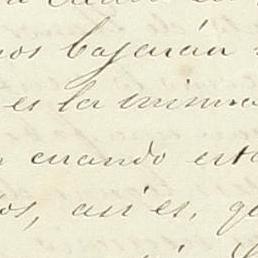 nos bajarán
es la misma
cuando est
os, así es, q